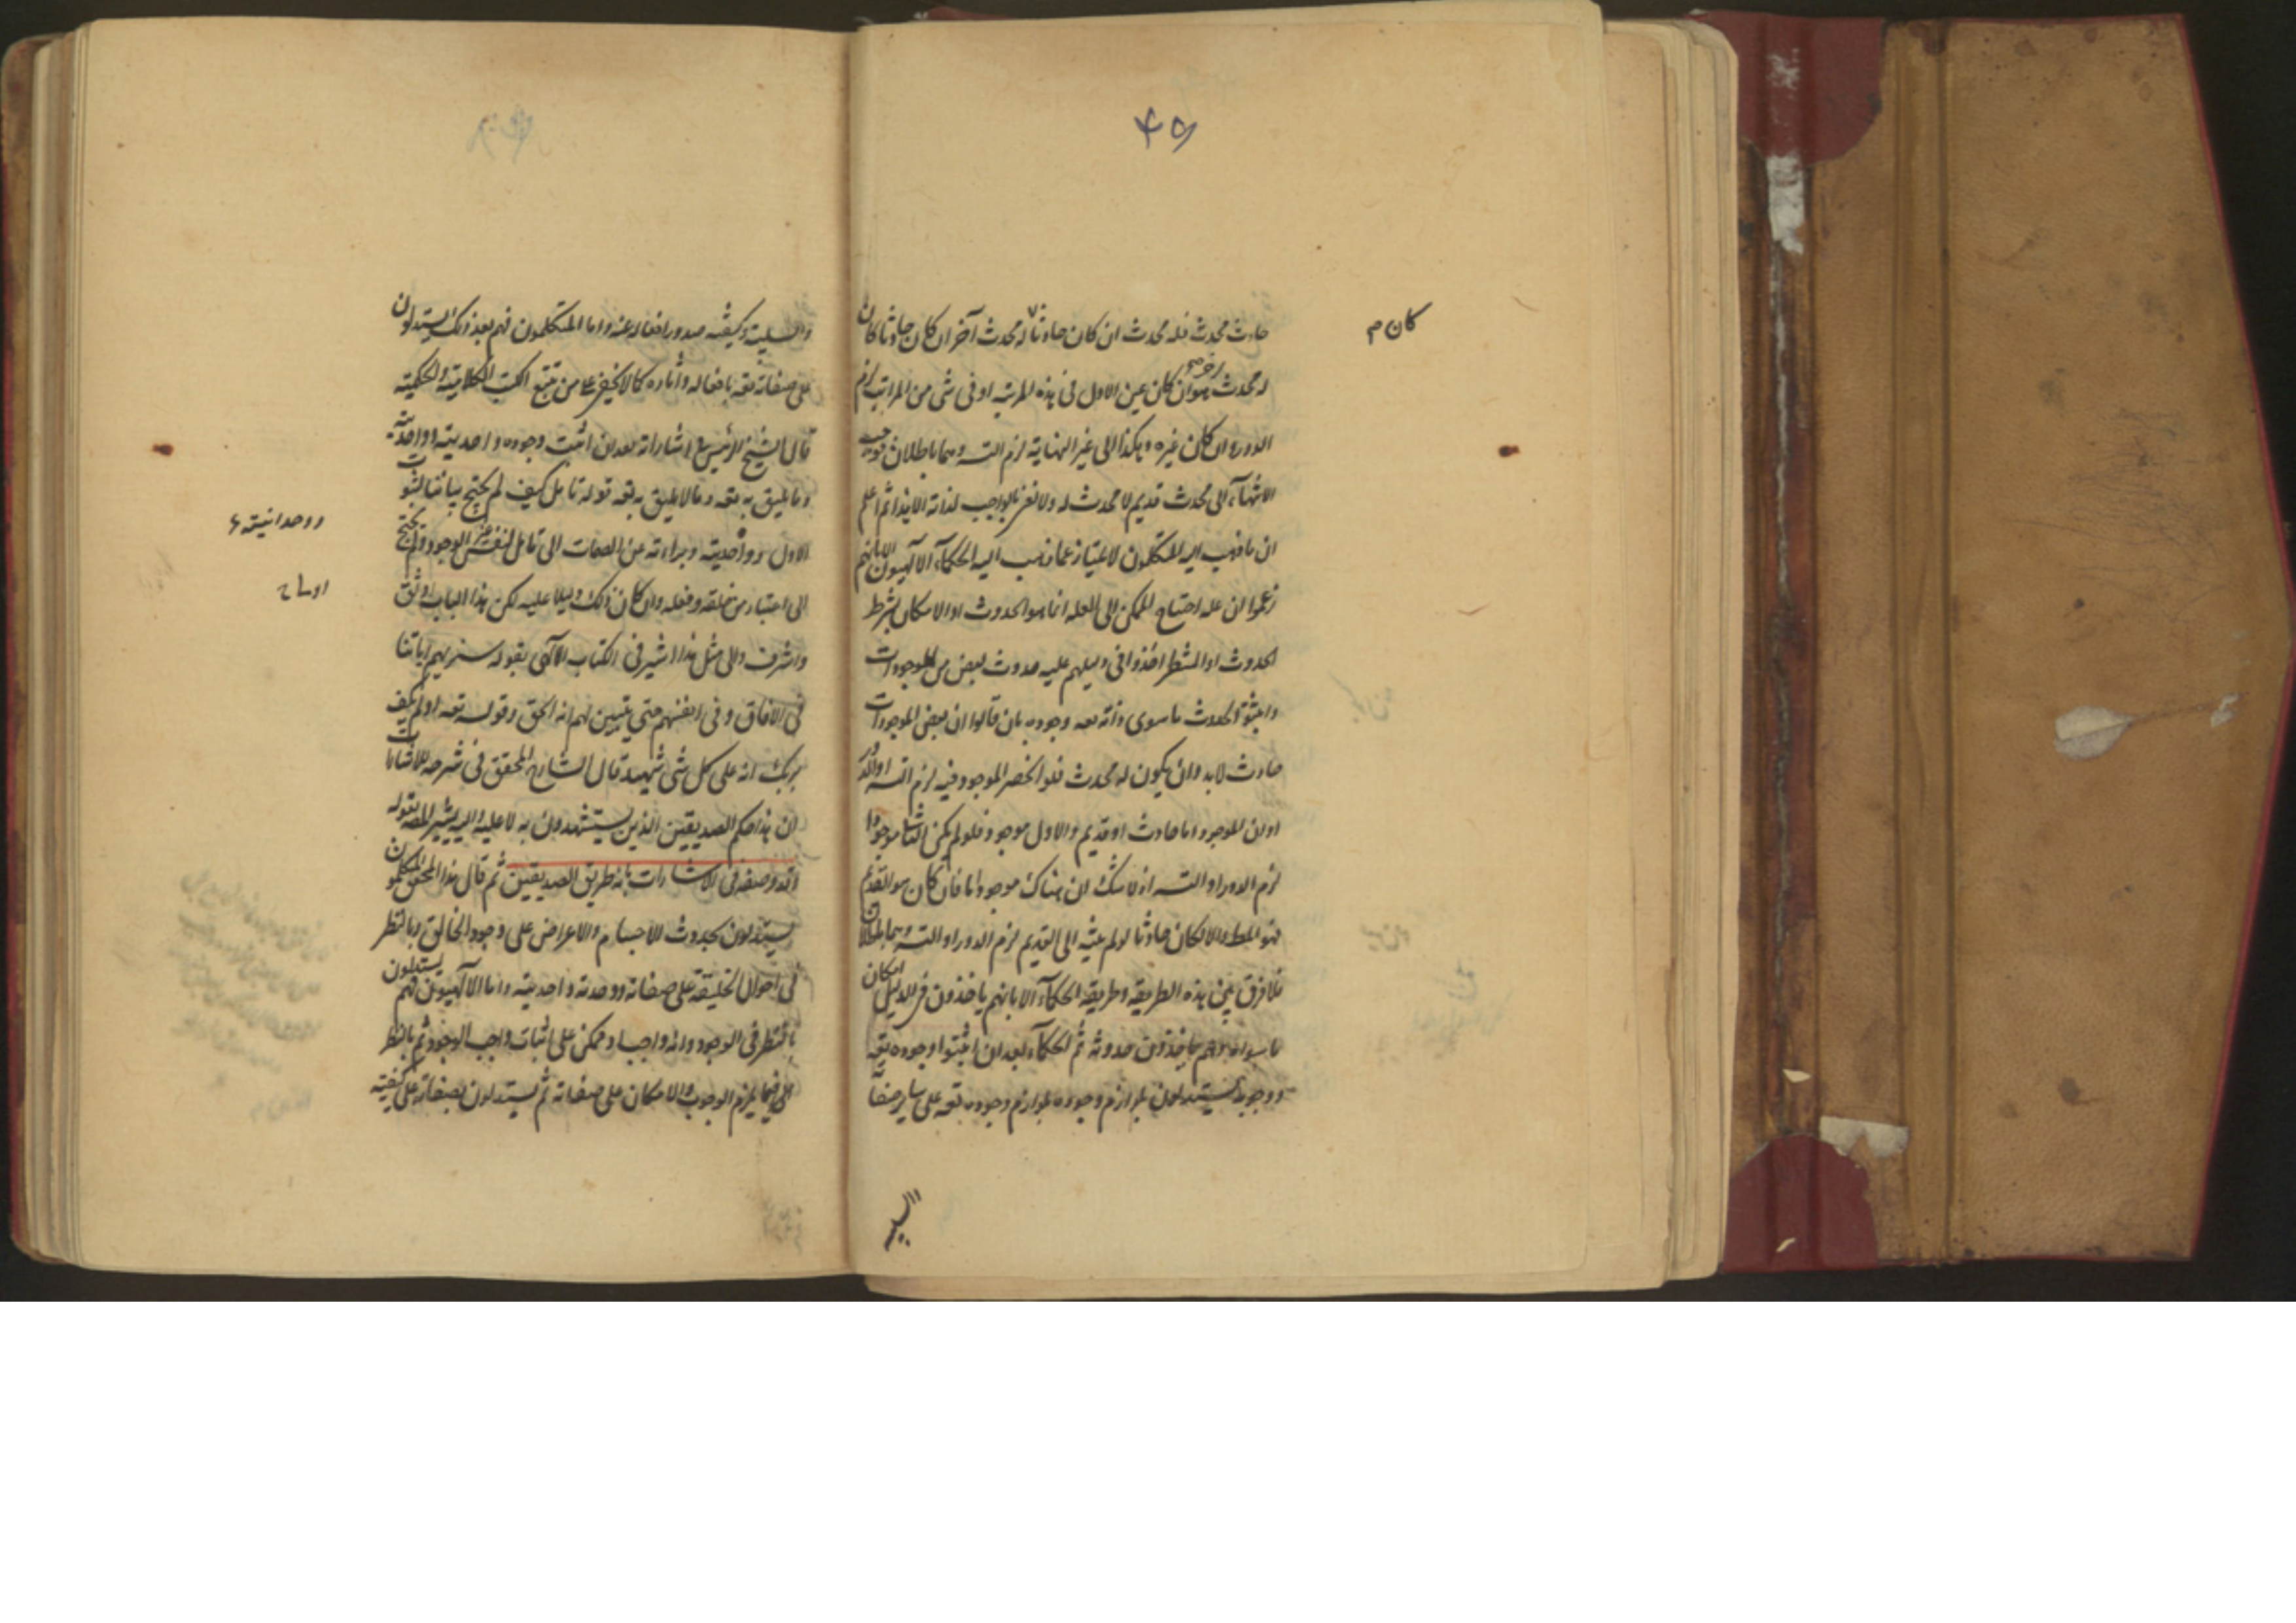 ٤٥
حادث محدث فله محدث ان كان حادثا له محدث آخر ان كان حادثا كان
كان م
له محدث آخر هو ان كان عين الاول فى هذه المرتبه او فى شئ من المراتب لزم
الدور وان كان غيره وهكذا الى غير النهاية لزم التسـ وهما باطلان فوجب
الانتهآء الى محدث قديم لا محدث له ولا نعنى بالواجب لذاته الا هذا ثم اعلم
ان ما ذهب اليه المتكلمون لا يمتاز عما ذهب اليه الحكمآء الآلهيون الا بانهم
زعموا ان علة احتياج الممكن الى العله انما هو الحدوث او الامكان بشرط
الحدوث او المشطر اخذوا فى دليلهم عليه حدوث بعض من الموجودات
واثبتوا الحدوث ما سوى ذاته تعه وجوده بان قالوا ان بعض الموجودات
حادث لابد وان يكون له محدث فلو انحصر الموجود فيه لزم التسـ او الدور
او ان الموجود اما حادث او قديم والاول موجود فلو لم يكن الثانى موجودا
لزم الدور او التسـ اذ لا شك ان هناك موجودا ما فان كان هو القديم
فهو المط والا لكان حادثا لو لم ينته الى القديم لزم الدور او التسـ وهما باطلان
فلا فرق بين هذه الطريقه وطريقه الحكمآء الا بانهم ياخذون فى الدليل امكان
ما سواه وهم ياخذون حدوثه ثم الحكمآء بعد ان اثبتوا وجوده تعه
ووجوبه يستدلون بلوازم وجوده بلوازم وجوده تعه على ساير صفاته
والسلبية وكيفيه صدور افعاله عنه واما المتكلمون فهم بعد ذلك يستدلون
على صفاته تعه بافعاله وآثاره كما لا يخفى على من تتبع الكتب الكلامية والحكمية
قال الشيخ الرئيس فى اشاراته بعد ان اثبت وجوده واحديته وواحديته
وما يليق به تعه وما لا يليق به تعه قوله تامل كيف لم يحتج بياننا لثبوت
ووحدانيته ع
الاول وواحديته وبراءته عن الصمات الى تامل لغير نفس الوجود ولم يحتج
الى اعتبار من خلقه وفعله وان كان ذلك دليلا عليه لكن هذا الباب اوثق
واشرف والى مثل هذا اشير فى الكتاب الآلهى بقوله سنريهم اياتنا
فى الافاق وفى انفسهم حتى يتبين لهم انه الحق وقوله تعه اولم يكف
بربك انه على كل شئ شهيد قال الشارح المحقق فى شرحه للاشارات
ان هذا حكم الصديقين الذين يستشهدون به لا عليه واليه يشير المص بقوله
وقد وصفه فى الاشارات بانه طريق الصديقين ثم قال هذا المحقق المتكلمون
يستدلون بحدوث الاجسام والاعراض على وجود الخالق وبالنظر
فى احوال الخليقة على صفاته ووحدته واحديته واما الآلهيون فهم يستدلون
بالنظر فى الوجود وانه واجب او ممكن على اثبات واجب الوجود ثم بالنظر
الى فيما يلزم الوجوب والامكان على صفاته ثم يستدلون بصفاته على كيفيته